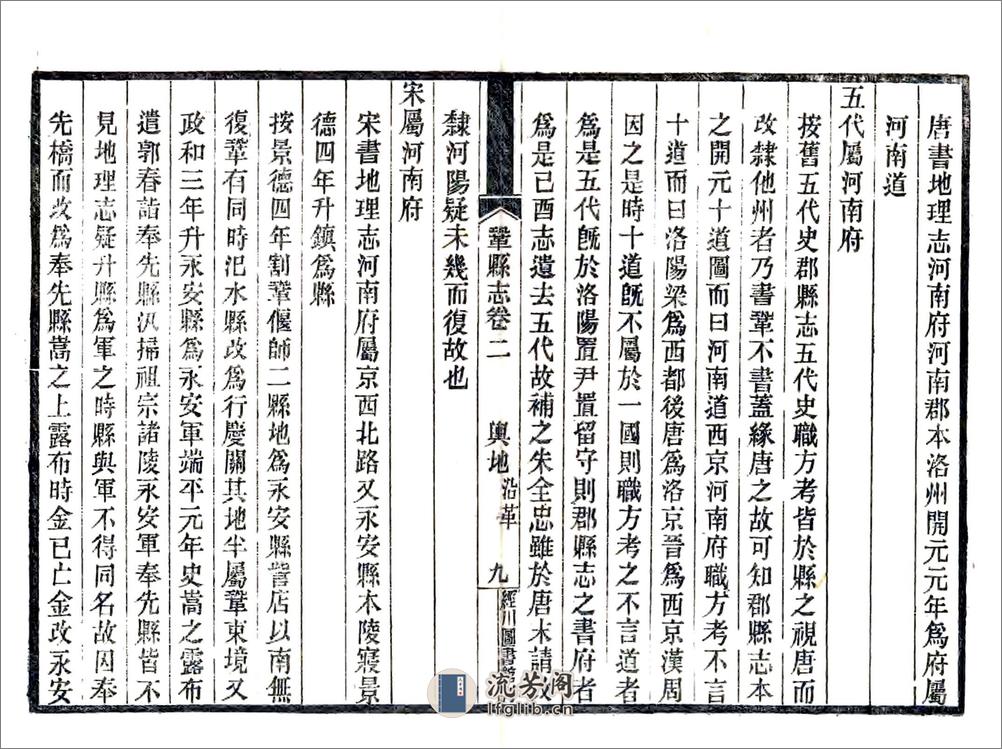 唐書地理志河南府河南郡本洛州開元元年爲府屬
河南道
五代屬河南府
按舊五代史郡縣志五代史職方考皆於縣之視唐而
改隸他州者乃書鞏不書蓋緣唐之故可知郡縣志本
之開元十道圖而曰河南道西京河南府職方考不言
十道而曰洛陽梁爲西都後唐爲洛京晉爲西京漢周
因之是時十道旣不屬於一國則職方考之不言道者
爲是五代旣於洛陽置尹置留守則郡縣志之書府者
爲是已酉志遺去五代故補之朱全忠雖於唐末請
鞏縣志卷二
輿地
沿革
九
經川圖書
隸河陽疑未幾而復故也
宋屬河南府
宋書地理志河南府屬京西北路又永安縣本陵寢景
德四年升鎮爲縣
按景德四年割鞏偃師二縣地爲永安縣訾店以南無
復鞏有同時汜水縣改爲行慶關其地半屬鞏東境又
政和三年升永安縣爲永安軍端平元年史嵩之露布
遣郭春詣奉先縣汎掃祖宗諸陵永安軍奉先縣皆不
見地理志疑升縣爲軍之時縣與軍不得同名故因奉
先橋而改爲奉先縣嵩之上露布時金已亡金改永安
流芳阁
lfglib.cn